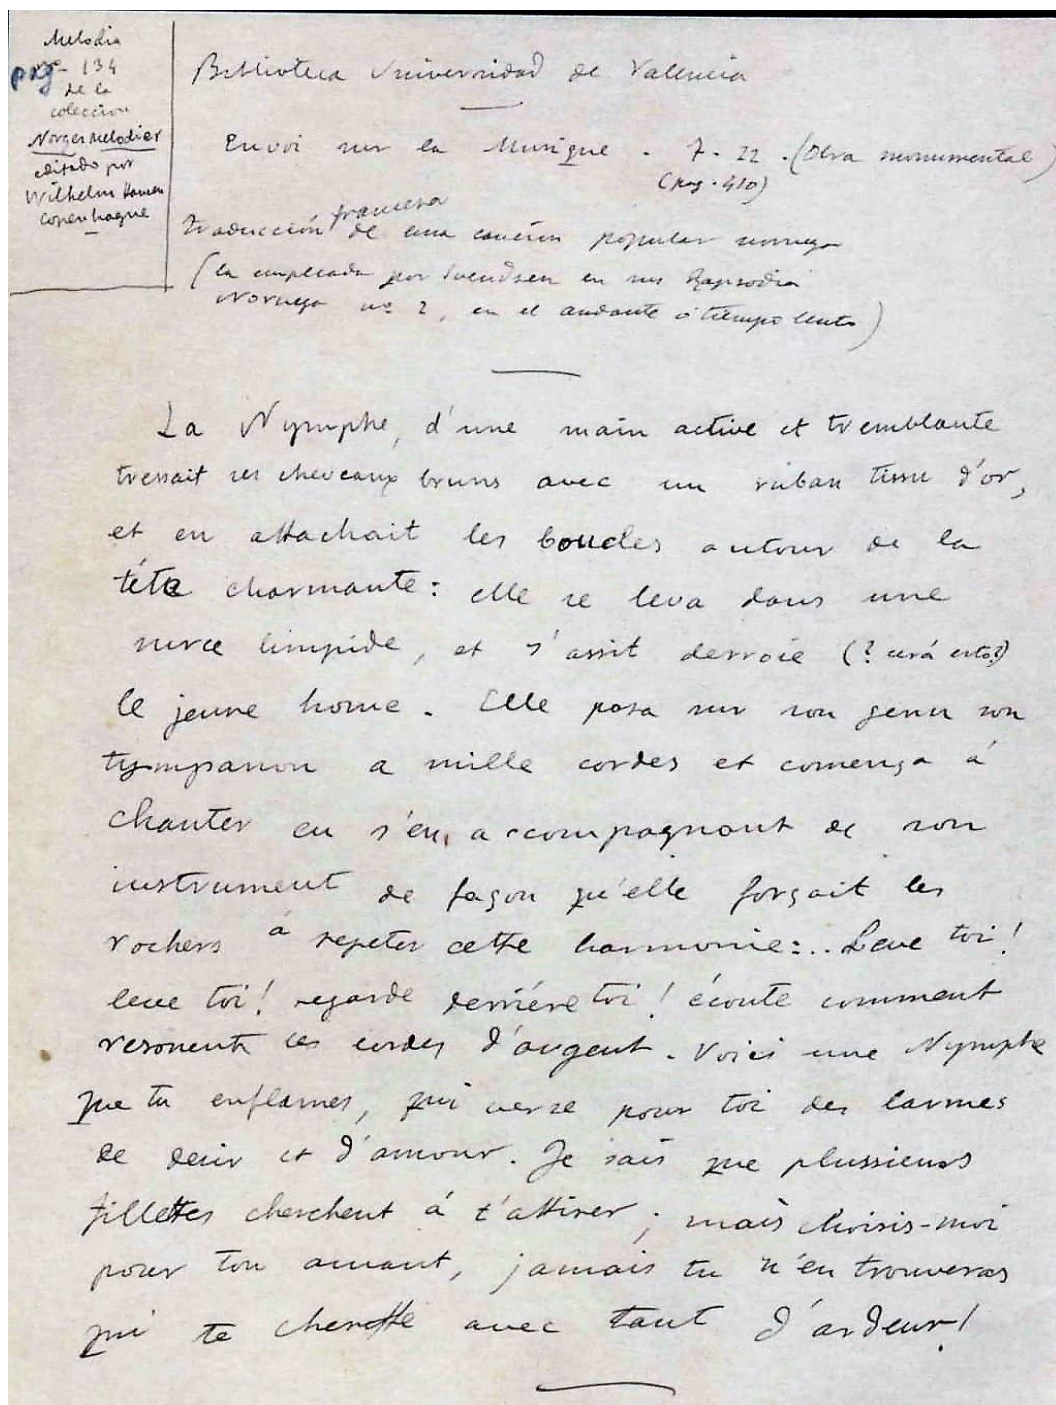 Melodia
nº 134
pag
de la
coleccion
Norges Melodier
editado por
Wilhelm Hansen
Copenhague
Biblioteca Universidad de Valencia
Envoi sur la Musique. 7-22. (Obra monumental)
(pag. 410)
francesa
traducción de una canción popular noruega
(la empleada por Svendsen en sus Rapsodia
Noruega nº 2, en el andante ó tiempo lento)
La Nymphe, d'une main active et tremblante
tressait ses cheveaux bruns avec un ruban tissu d'or,
et en attachait les boucles autour de la
téte charmante: elle se leva dans une
nuree limpide, et s'assit derroie (? será esto?)
le jeune home. Elle posa sur son genu son
tympanon a mille cordes et comença á
chanter en s'en accompagnant de son
instrument de façon qu'elle forçait les
rochers á repeter cette harmonie:.. Leve toi!
leve toi! regarde derriére toi! écoute comment
resonent ces cordes d'argent. Voici une Nymphe
que tu enflames, qui verse pour toi des larmes
de desir et d'amour. Je sais que plussieurs
fillettes cherchent á t'attirer; mais choisis-moi
pour ton amant, jamais tu n'en trouveras
qui te cherisse avec tant d'ardeur!